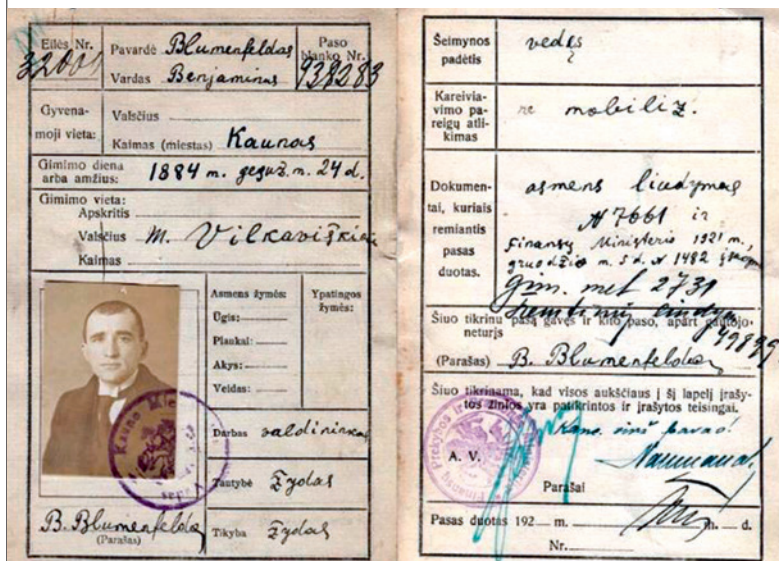 Eilės Nr.
32001
Pavardė Blumenfeldas
Vardas Benjaminas
Paso
blanko Nr.
938283
Gyvena-
moji vieta:
Valsčius
Kaimas (miestas) Kaunas
Gimimo diena
arba amžius: 1884 m. geguž. m. 24 d.
Gimimo vieta:
Apskritis
Valsčius m. Vilkaviškio
Kaimas
Asmens žymės:
Ūgis:
Plaukai:
Akys:
Veidas:
Ypatingos
žymės:
Darbas valdininkas
Tautybė Žydas
Tikyba Žydas
Kauno Mie
B. Blumenfeldas
(Parašas)
Šeimynos
padėtis
vedęs
Kareivia-
vimo pa-
reigų atli-
kimas
ne mobiliz.
Dokumen-
tai, kuriais
remiantis
pasas
duotas.
asmens liudymas
N 7661 ir
Finansų Ministerio 1921 m.,
gruodžio m. 5 d. N 1482
Gim. met 2731
Šiuo tikrinu pasą gavęs ir kito paso, apart gautojo-
neturįs
49899
(Parašas) B. Blumenfeldas
Šiuo tikrinama, kad visos aukščiaus į šį lapelį įrašy-
tos žinios yra patikrintos ir įrašytos teisingai.
A. V.
Prekybos ir
Finansų
Naumanas
Parašai
Pasas duotas 192 m. m. d.
Nr.